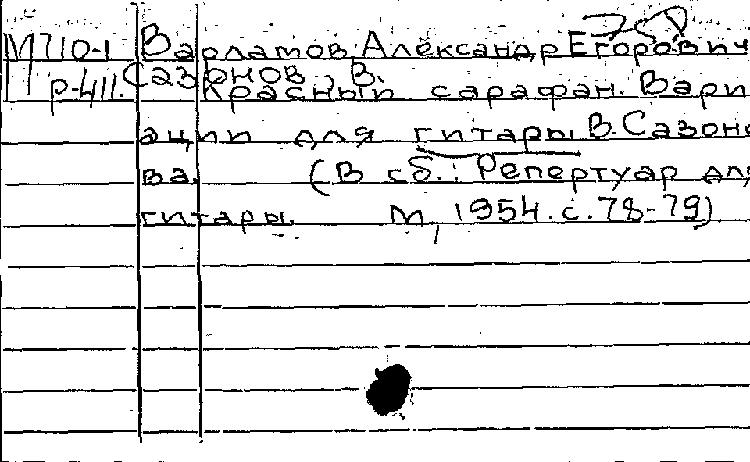 М710-1 Варламов Александр Егорович
р-411. Сазонов, В.
Красный сарафан. Вари
ации для гитары В. Сазоно
ва. (В сб.: Репертуар для
гитары. М, 1954. с. 78-79)